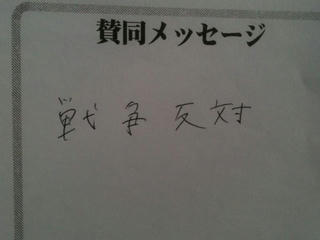 賛同メッセージ
戦争反対